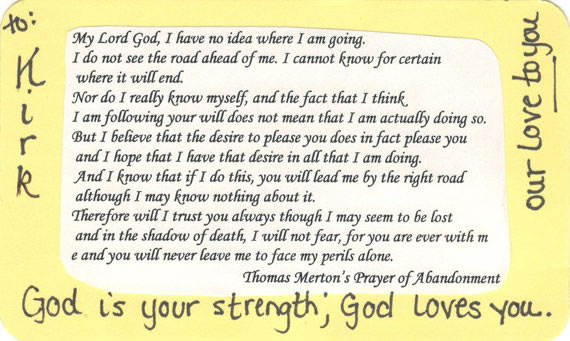 to:
Kirk
My Lord God, I have no idea where I am going.
I do not see the road ahead of me. I cannot know for certain
where it will end.
Nor do I really know myself, and the fact that I think
I am following your will does not mean that I am actually doing so.
But I believe that the desire to please you does in fact please you
and I hope that I have that desire in all that I am doing.
And I know that if I do this, you will lead me by the right road
although I may know nothing about it.
Therefore will I trust you always though I may seem to be lost
and in the shadow of death, I will not fear, for you are ever with m
e and you will never leave me to face my perils alone.
Thomas Merton's Prayer of Abandonment
our love to you
God is your strength; God Loves you.